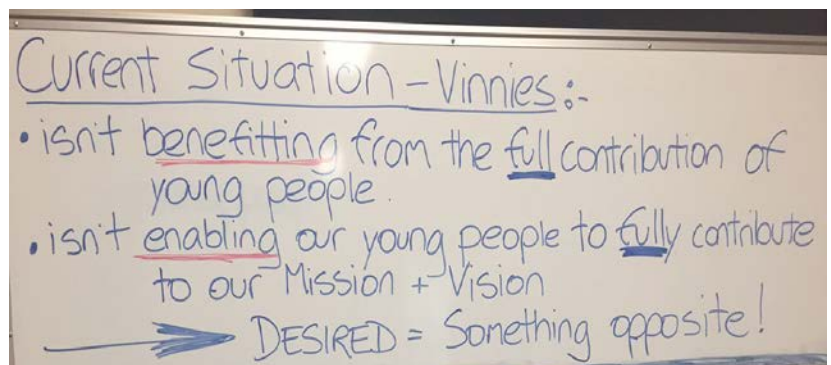 Current Situation - Vinnies:-
• isn't benefitting from the full contribution of
young people.
• isn't enabling our young people to fully contribute
to our Mission + Vision
DESIRED = Something opposite!